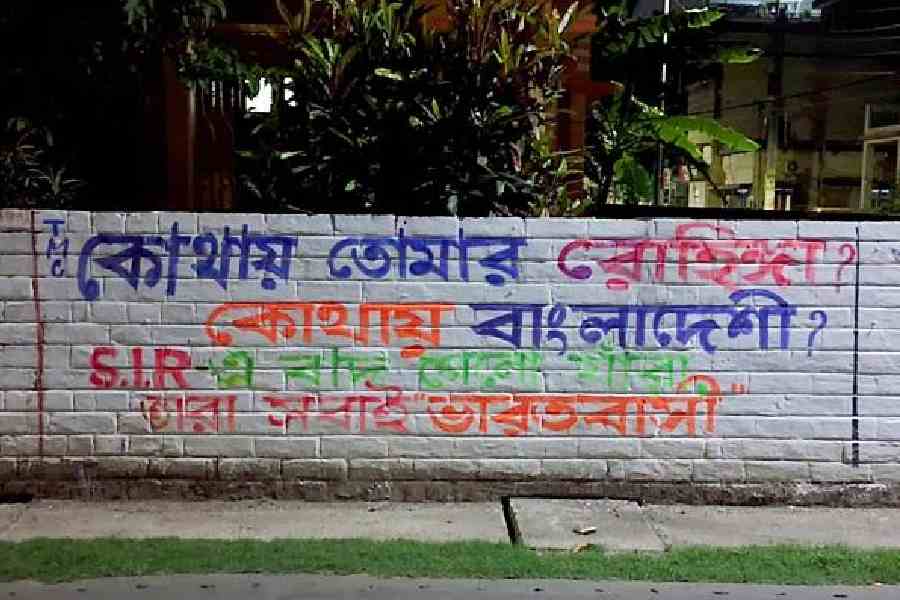 TMC
কোথায় তোমার রোহিঙ্গা?
কোথায় বাংলাদেশী?
S.I.R-এ বাদ গেলো যাঁরা,
তারা সবাই "ভারতবাসী"